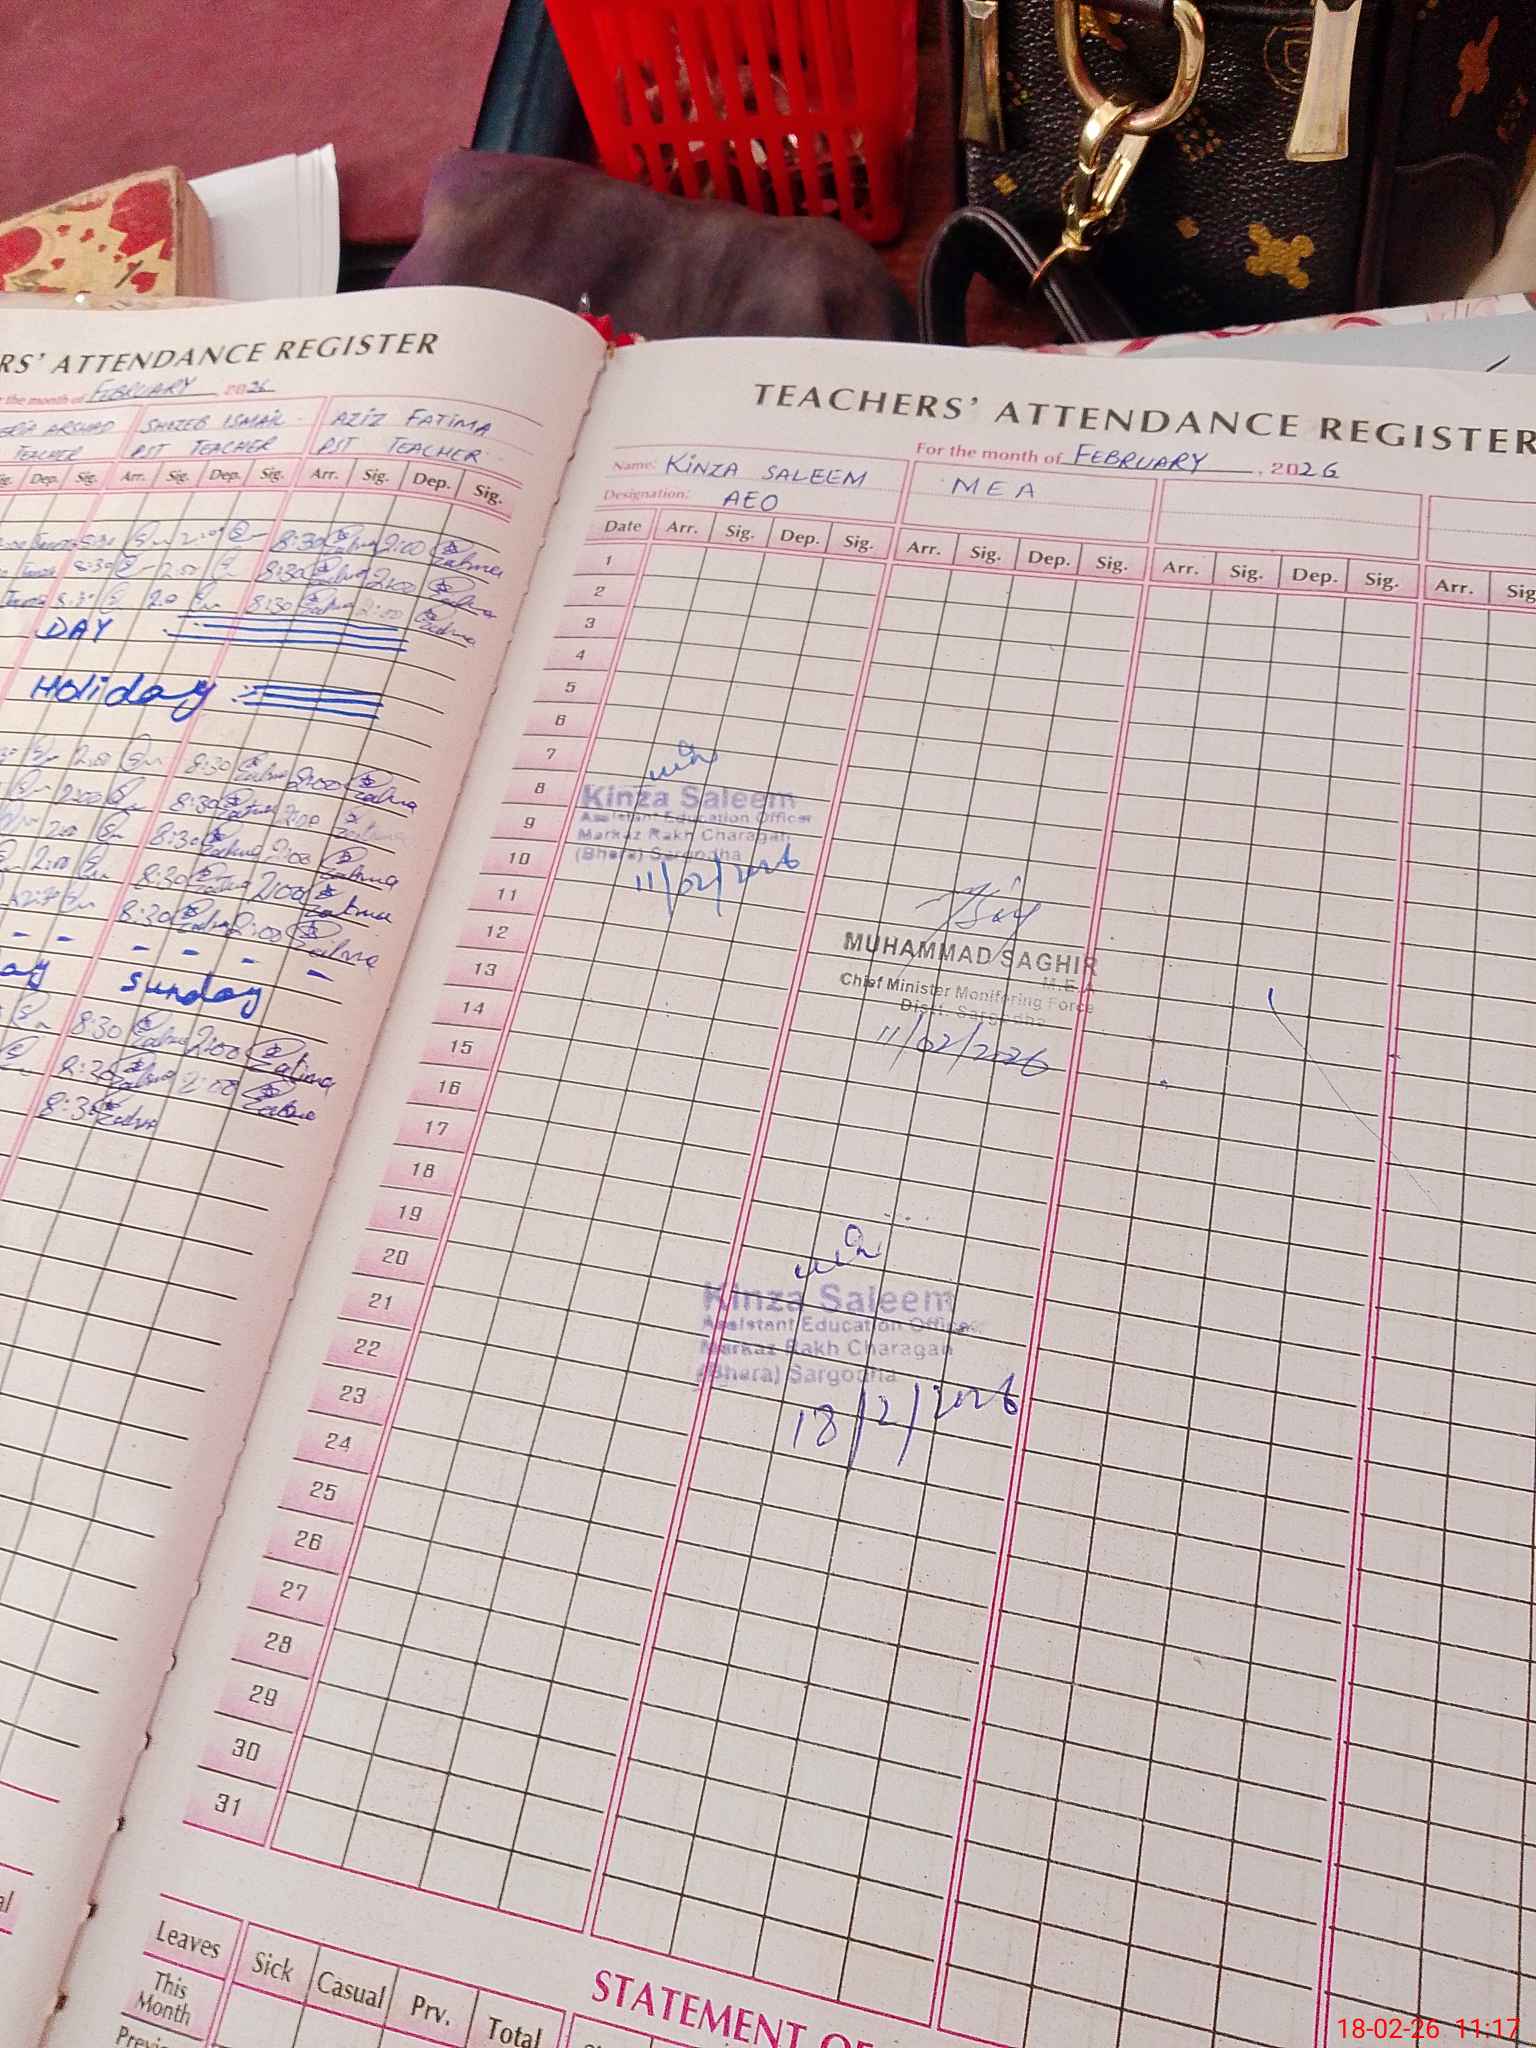 RS' ATTENDANCE REGISTER
the month of FEBRUARY 2026
ARSHAD SHAZEB ISMAIL AZIZ FATIMA
TEACHER PST TEACHER PST TEACHER
Dep. Sig. Arr. Sig. Dep. Sig. Arr. Sig. Dep. Sig.
8:30 2:00 8:30 Fatima 2:00 Fatima
8:30 2:00 8:30 Fatima 2:00 Fatima
8:30 2:00 8:30 Fatima 2:00 Fatima
DAY
Holiday
2:00 8:30 Fatima 2:00 Fatima
2:00 8:30 Fatima 2:00 Fatima
2:00 8:30 Fatima 2:00 Fatima
2:00 8:30 Fatima 2:00 Fatima
8:30 Fatima 2:00 Fatima
ay sunday
8:30 Fatima 2:00 Fatima
8:30 Fatima 2:00 Fatima
8:30 Fatima
TEACHERS' ATTENDANCE REGISTER
For the month of FEBRUARY, 2026
Name: KINZA SALEEM MEA
Designation: AEO
Date Arr. Sig. Dep. Sig. Arr. Sig. Dep. Sig. Arr. Sig. Dep. Sig. Arr. Sig
1
2
3
4
5
6
7
8
9
10
11
12
13
14
15
16
17
18
19
20
21
22
23
24
25
26
27
28
29
30
31
Kinza Saleem
Assistant Education Officer
Markaz Rakh Charagah
(Bhera) Sargodha
11/02/2026
MUHAMMAD SAGHIR
M.E.A
Chief Minister Monitoring Force
Distt. Sargodha
11/02/2026
Kinza Saleem
Assistant Education Officer
Markaz Rakh Charagah
(Bhera) Sargodha
18/2/2026
Leaves Sick Casual Prv. Total
This Month
STATEMENT OF
18-02-26 11:17